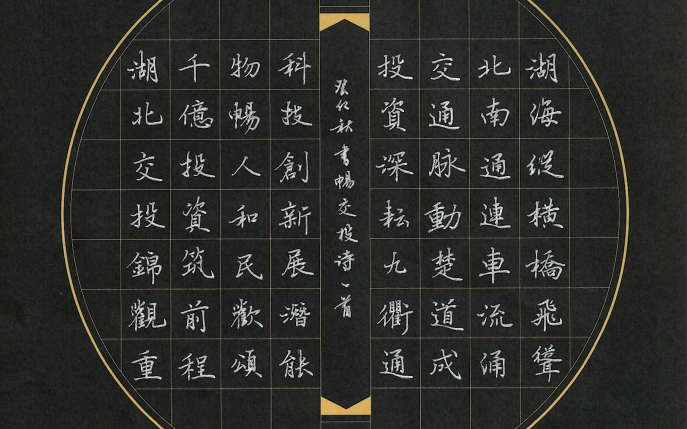 湖海縱橫橋飛聳
北南通連車流涌
交通脈動楚道成
投資深耘九衢通
癸卯秋書暢交投詩一首
科投創新展潛能
物暢人和民歡頌
千億投資筑前程
湖北交投錦觀重